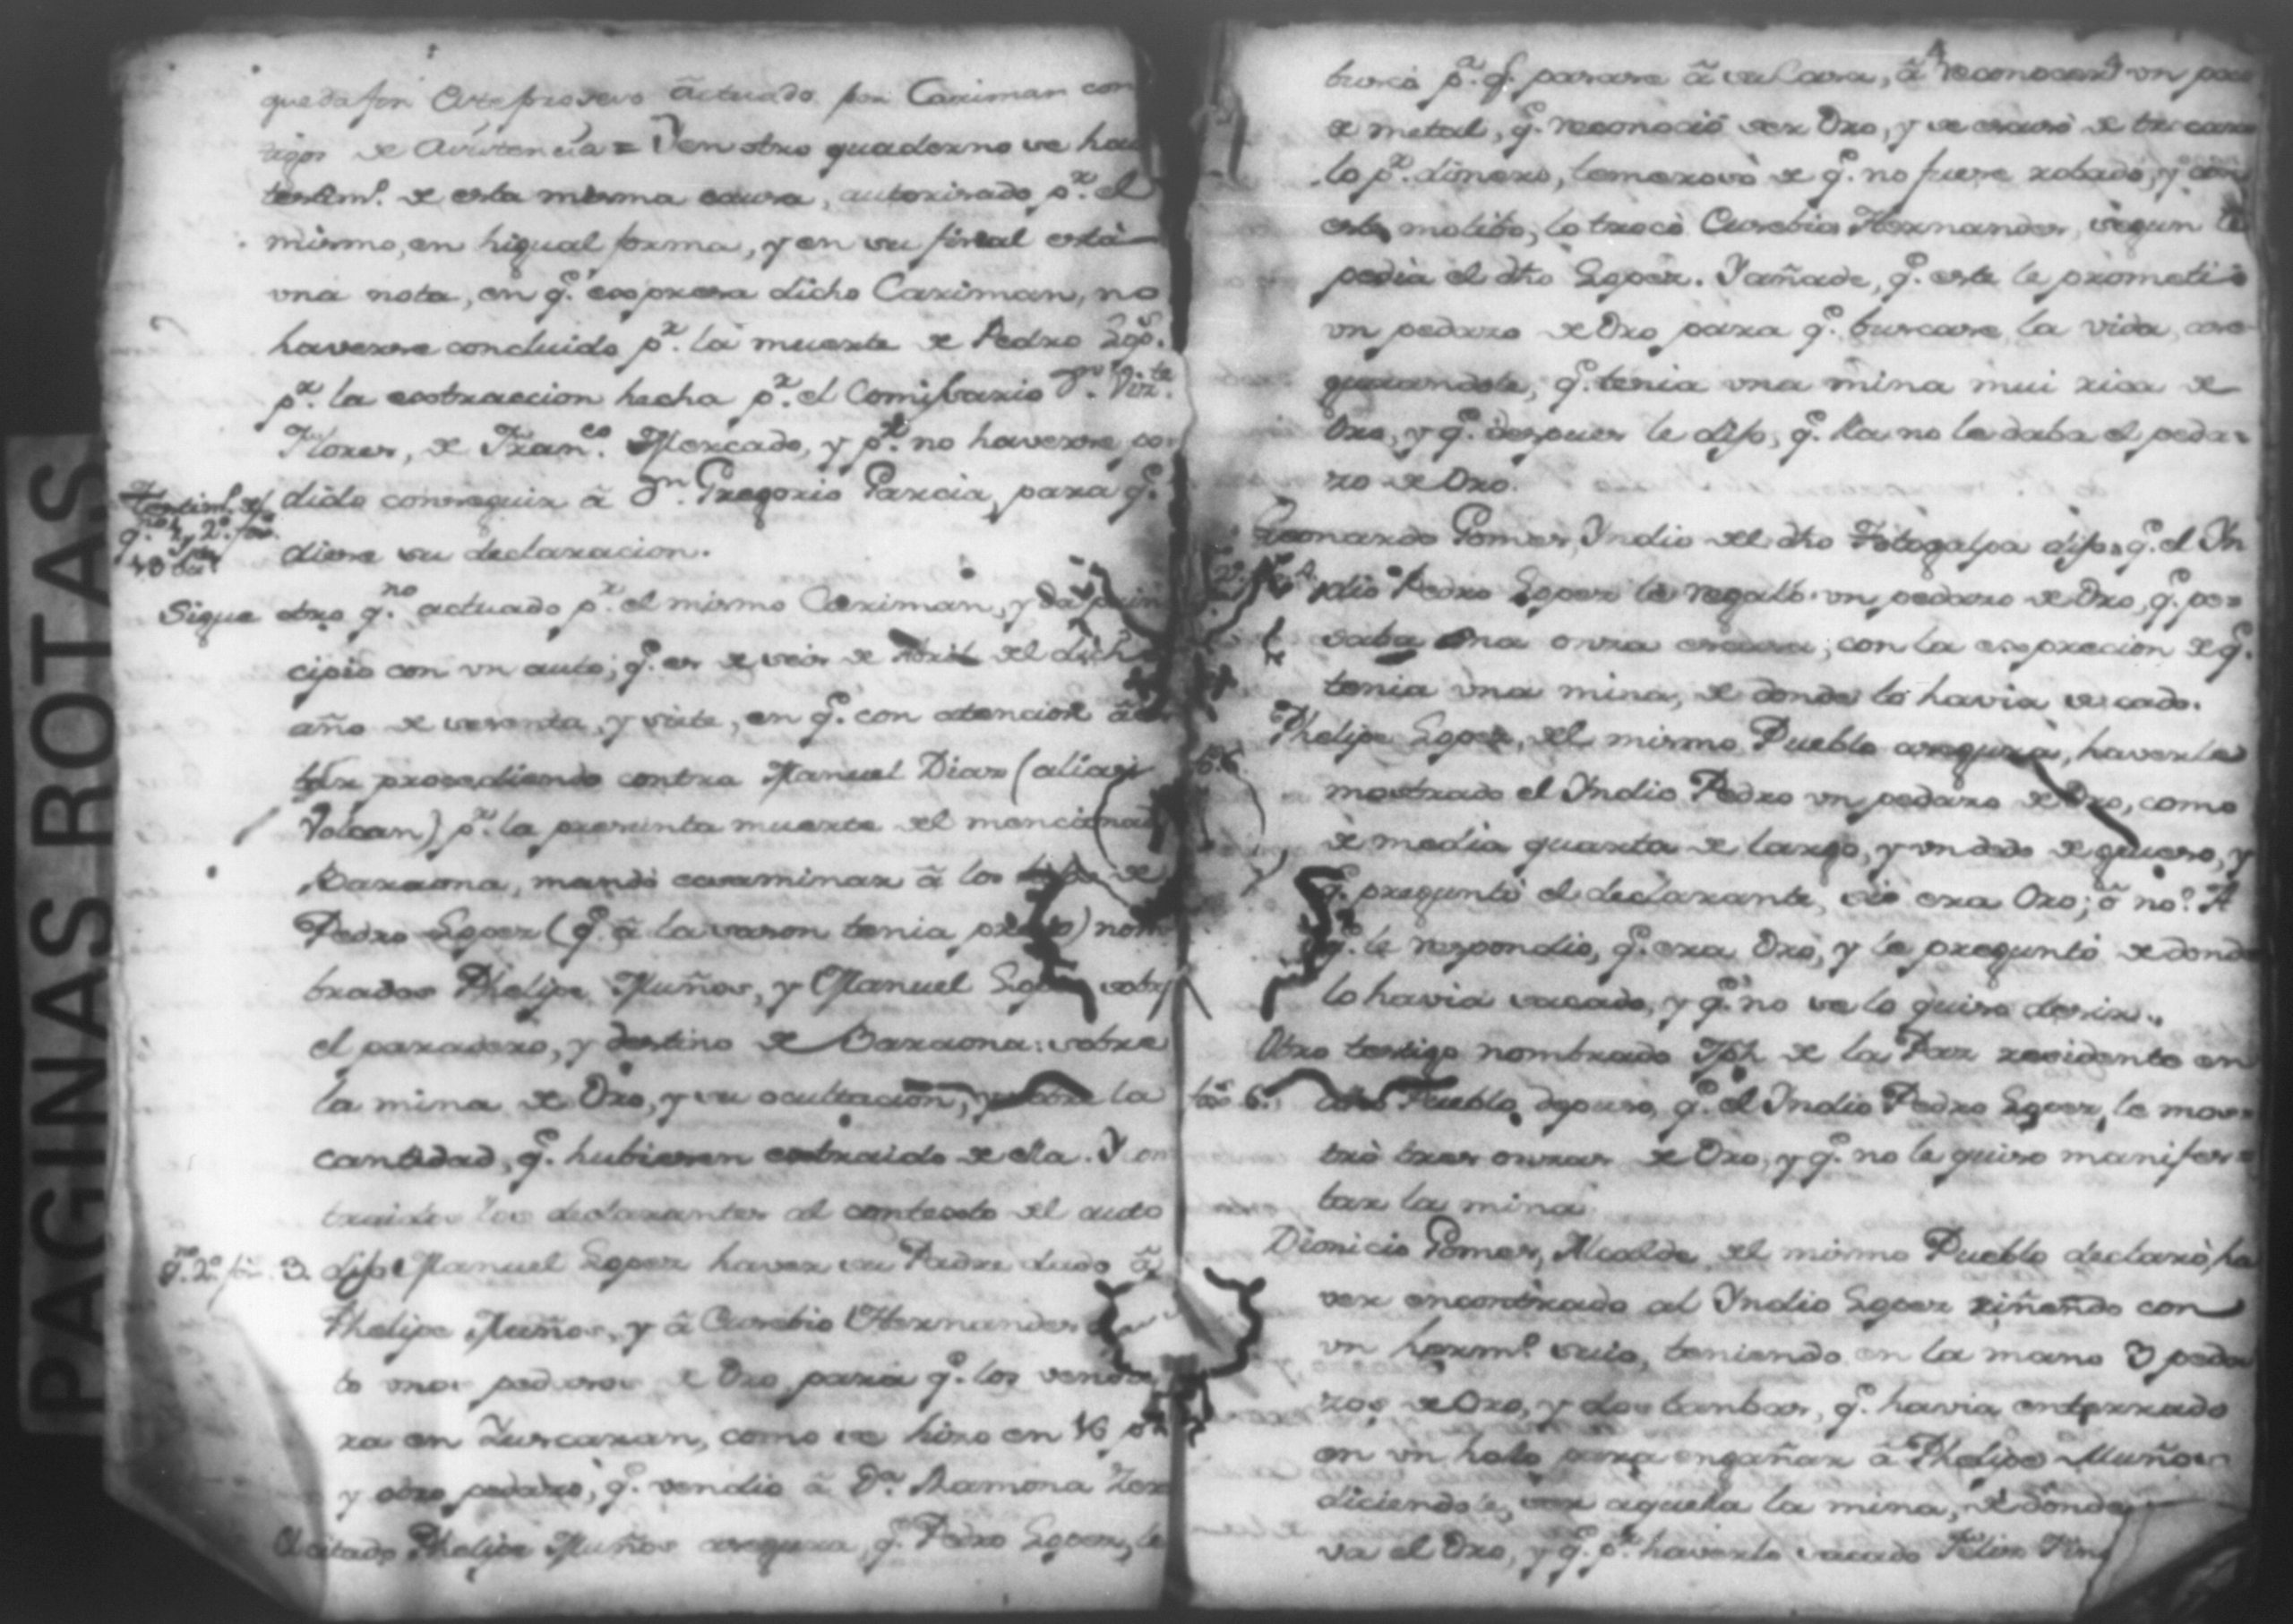 PAGINAS ROTAS
actuado por Cariman con
tigos de Asistencia = Y en otro quaderno se ha
testimº. de esta misma causa, autorisado pʳ. el
mismo, en higual forma, y en su final está
una nota, en qᵉ. expresa dicho Cariman, no
haverse concluido pʳ. la muerte de Pedro Lopˢ.
pʳ. la extraccion hecha pʳ. el Comissario Dⁿ. Vizᵗᵉ.
Flores, de Franᶜᵒ. Mercado, y pʳ. no haverse po
dido conseguir â Dⁿ. Gregorio Garcia, para qᵉ.
diese su declaracion.
Sigue otro qⁿᵒ. actuado pʳ. el mismo Cariman, y da prin
cipio con un auto, qᵉ. es de seis de Abril del dich
año de sesenta, y siete, en qᵉ. con atencion â
procediendo contra Manuel Dias (alias
Volcan) pʳ. la presunta muerte del mencionad
Baraona, mandó examinar â los de
Pedro Lopez (qᵉ. â la sason tenia preso) nom
brados Phelipe Muños, y Manuel Lopez sobre
el paradero, y destino de Baraona: sobre
la mina de Oro, y su ocultacion, y sobre la
cantidad, qᵉ. hubiesen extraido de ella. Y con
traidos los declarantes al contexto del auto
qⁿᵒ. 2º. fôˢ. 3. dijo Manuel Lopez haver su Padre dado â
Phelipe Muños, y â Eusebio Hernandes
to mas pedasos de Oro para qᵉ. los vendie
ra en Yuscaran, como se hizo en 16 pˢ
y otro pedaso, qᵉ. vendio â Dª. Ramona
El citado Phelipe Muños asegura, qᵉ. Pedro Lopez, le
buscó pª. qᵉ. pasase â su Casa, â reconocer un
de metal, qᵉ. reconoció ser Oro, y se escusó de trocar
lo pʳ. dinero, temeroso de qᵉ. no fuese robado, y con
este motibo, lo trocó Eusebio Hernandes, segun le
pedia el dho Lopez. Y añade, qᵉ. este le prometió
un pedazo de Oro para qᵉ. buscase la vida, ase
gurandole, qᵉ. tenia una mina mui rica de
Oro, y qᵉ. despues le dijo, qᵉ. Ya no le daba el peda=
zo de Oro.
Leonardo Gomes, Indio del dho Totogalpa dijo, qᵉ. el In
dio Pedro Lopez le regaló un pedazo de Oro, qᵉ. pe=
saba una onza escasa, con la exprecion de qᵉ.
tenia una mina, de donde lo havia sacado.
Phelipe Lopez, del mismo Pueblo asegura, haverle
mostrado el Indio Pedro un pedazo de Oro, como
de media quarta de largo, y un dedo de grueso, y
qᵉ. preguntó el declarante, sio era Oro; ô no? A
qᵉ. le respondio, qᵉ. era Oro, y le preguntó de donde
lo havia sacado, y qᵉ. no se lo quiso desir.
Otro testigo nombrado Jph de la Paz residente en
fôˢ 6. dho Pueblo depuso, qᵉ. el Indio Pedro Lopez, le mos=
tró tres onzas de Oro, y qᵉ. no le quiso manifes=
tar la mina
Dionicio Gomes, Alcalde del mismo Pueblo declaró, ha
ver encontrado al Indio Lopez riñendo con
un hermº. suio, teniendo en la mano 3 peda
zos de Oro, y dos tambor, qᵉ. havia enterrado
en un hoio para engañar â Phelipe Muños
diciendole, ser aquella la mina, de donde
va el Oro, y qᵉ. pʳ. haverlo sacado